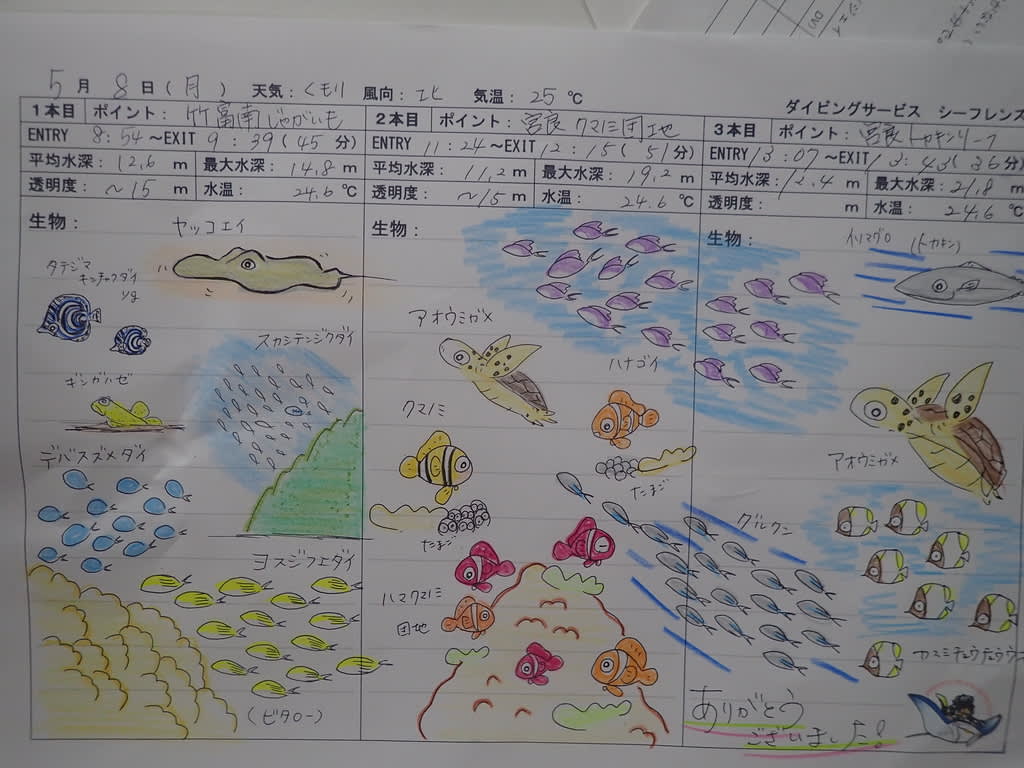 5月 8日(月) 天気:くもり 風向:北 気温:25℃
ダイビングサービス シーフレンズ
1本目 ポイント:竹富南じゃがいも
ENTRY 8:54〜EXIT 9:39(45分)
平均水深:12.6m 最大水深:14.8m
透明度:〜15m 水温:24.6℃
生物:
ヤッコエイ
タテジマ
キンチャクダイ
yg
スカシテンジクダイ
ギンガハゼ
デバスズメダイ
ヨスジフエダイ
(ビタロー)
2本目 ポイント:宮良クマノミ団地
ENTRY 11:24〜EXIT 12:15(51分)
平均水深:11.2m 最大水深:19.2m
透明度:〜15m 水温:24.6℃
生物:
アオウミガメ
ハナゴイ
クマノミ
たまご
たまご
ハマクマノミ
団地
3本目 ポイント:宮良トカキンリーフ
ENTRY 13:07〜EXIT 13:43(36分)
平均水深:12.4m 最大水深:21.8m
透明度: m 水温:24.6℃
生物:
イソマグロ (トカキン)
アオウミガメ
グルクン
カスミチョウチョウウオ
ありがとう
ございました!